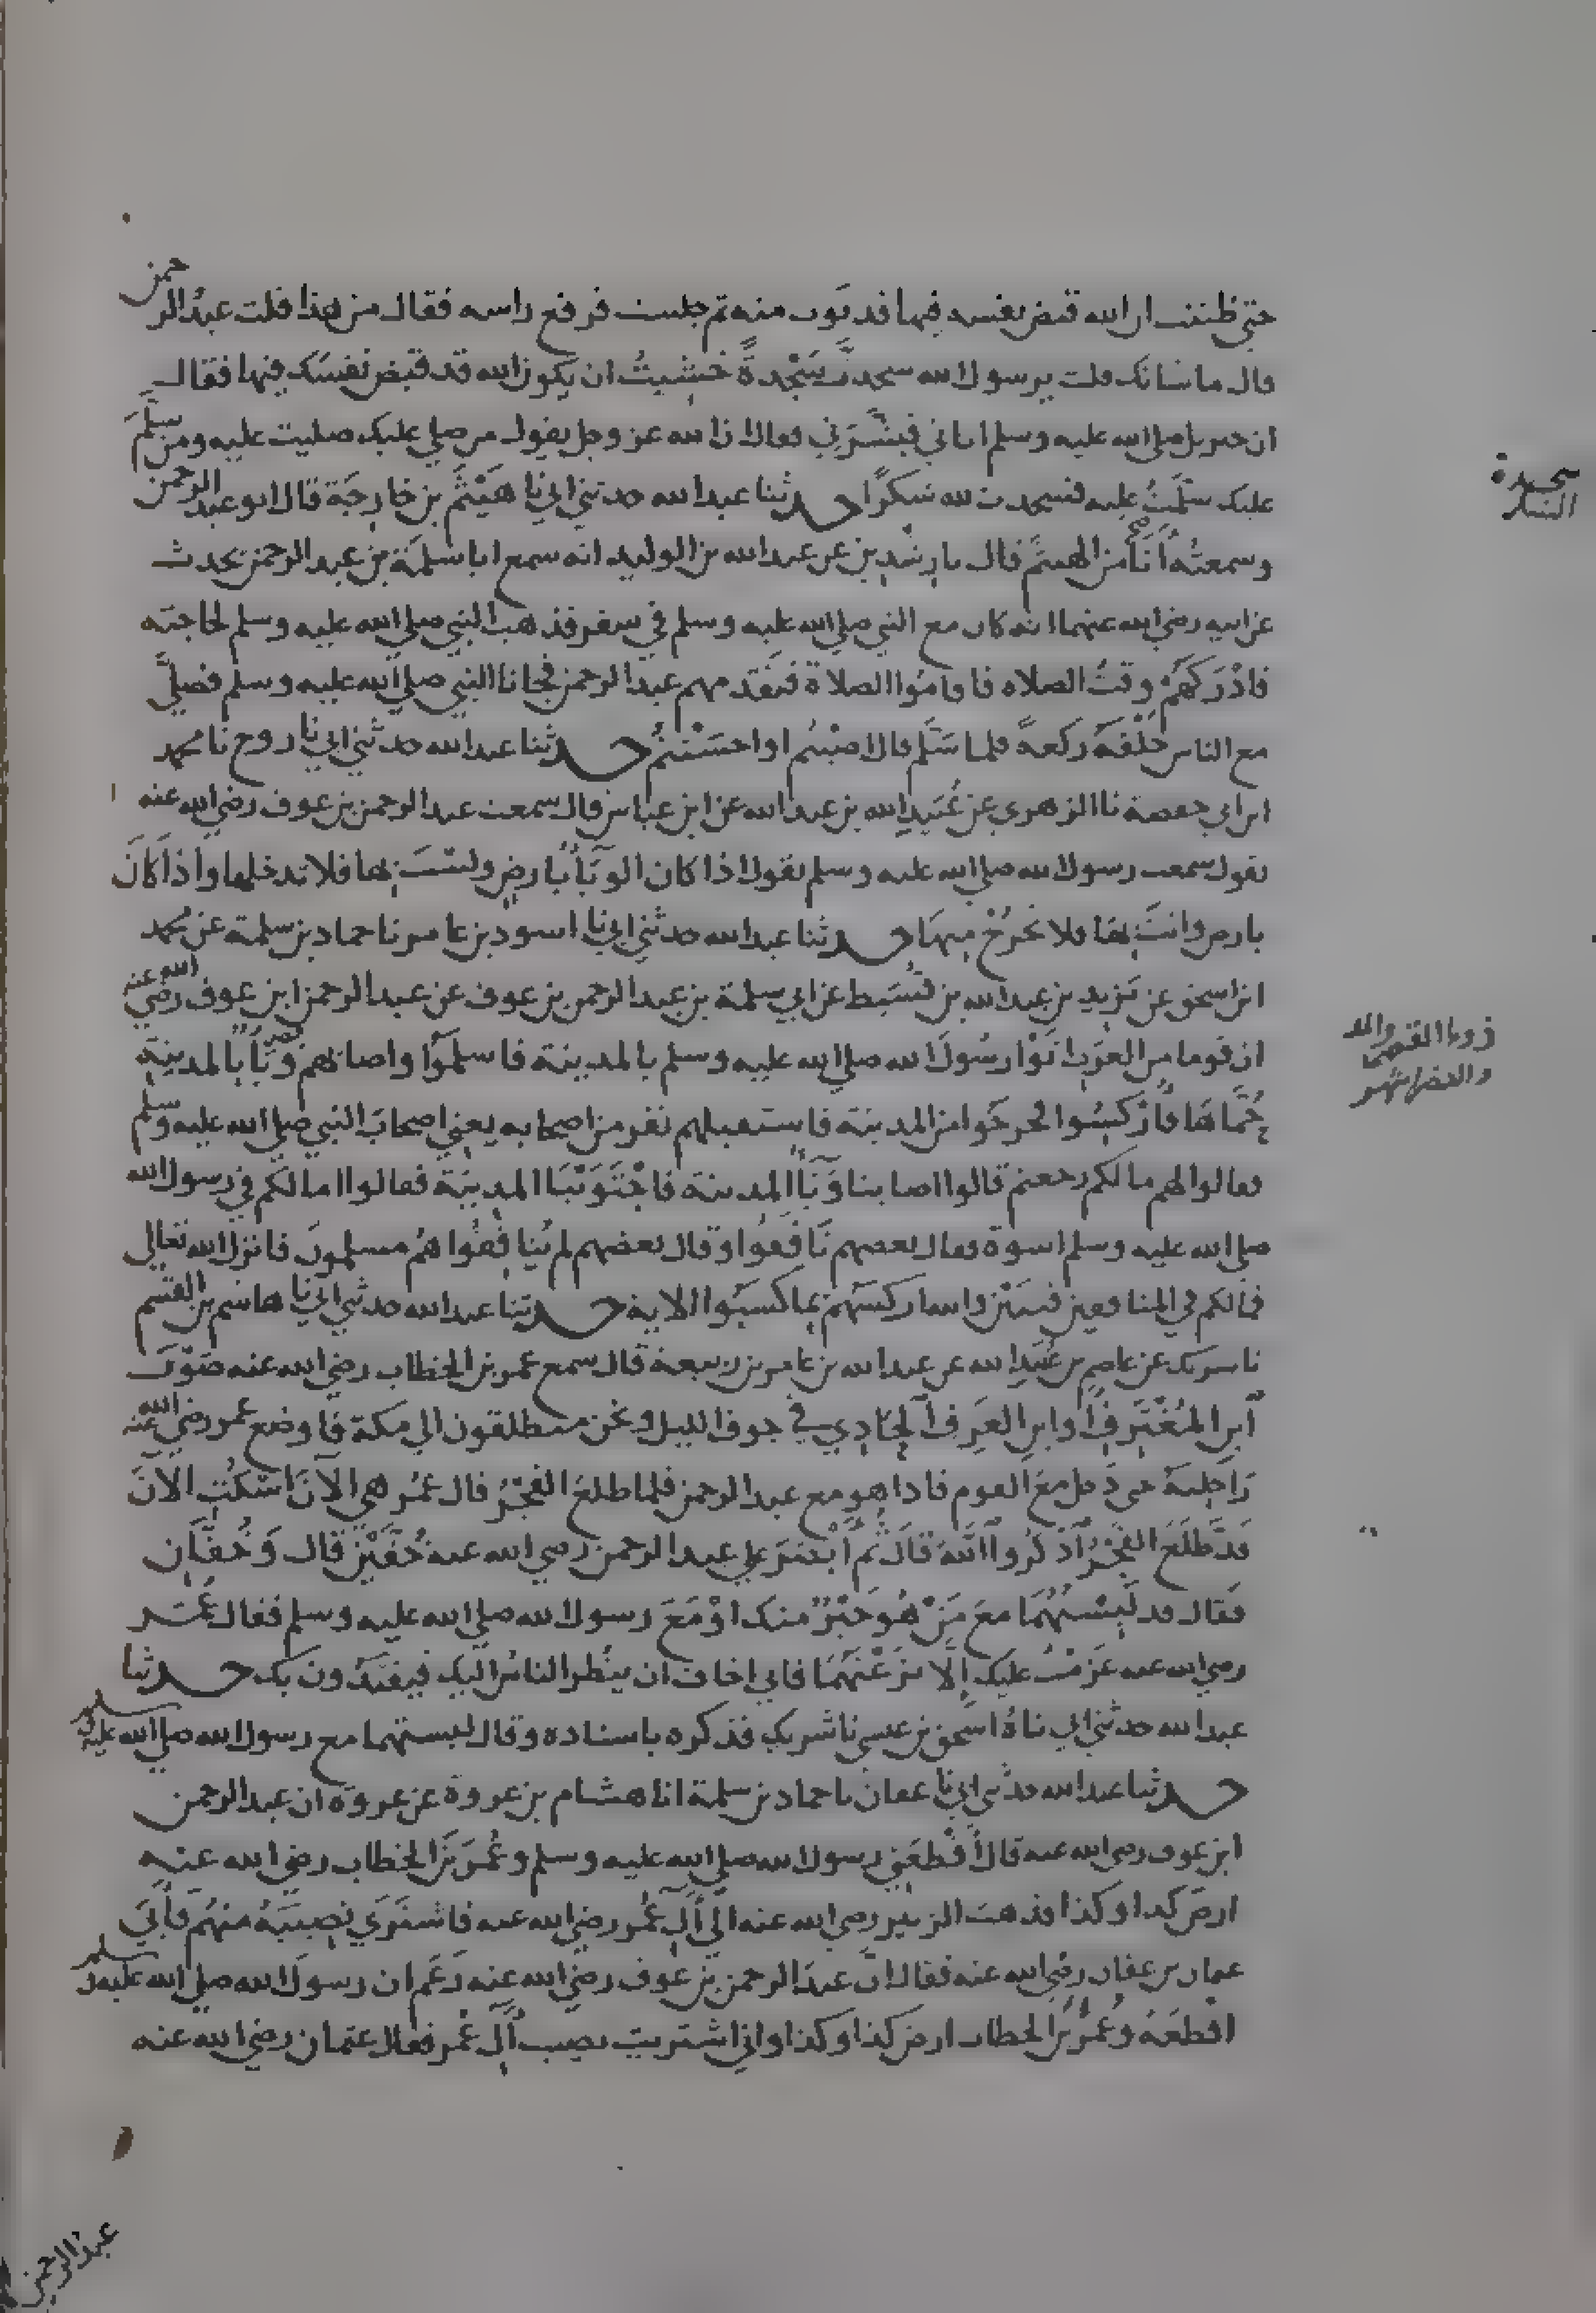 حتى ظننت ان الله قبض نفسه فيها فدنوت منه ثم جلست فرفع راسه فقال من هذا قلت عبد الرحمن
قال ما شانك قلت يرسول الله سجدتَ سَجْدةً خشيتُ ان يكون الله قد قبض نفسك فيها فقال
ان جبريل صلى الله عليه وسلم اتاني فبشّرني فقال ان الله عز وجل يقول من صلى عليك صليت عليه ومن سلّمَ
عليك سلّمتُ عليه فسجدت لله شكرًا حدثنا عبد الله حدثني ابي نا هَيْثَم بن خارجَة قال ابو عبد الرحمن
وسمعتُه أنَا من الهيثم قال نا رِشْدِين عن عبد الله بن الوليد انه سمع ابا سلمَة بن عبد الرحمن يحدث
عن ابيه رضي الله عنهما انه كان مع النبي صلى الله عليه وسلم في سفر فذهب النبي صلى الله عليه وسلم لحاجته
فادْرَكَهُمْ وقتُ الصلاه فاقامُوا الصلاة فتقدمهم عبد الرحمن فجا نا النبي صلى الله عليه وسلم فصلَّى
مع الناس خَلْفَهُ ركعةً فلما سَلَّم قال اصبْتم او احسَنْتمُ حدثنا عبد الله حدثني ابي نا روح نا محمد
ابن ابي حفصة نا الزهري عن عُبَيدِ الله بن عبد الله عن ابن عباس قال سمعت عبد الرحمن بن عوف رضي الله عنه
يقول سمعت رسول الله صلى الله عليه وسلم يقول اذا كان الوَبَأُ بارضٍ ولسْتَ بها فلا تدخلها واذا كانَ
بارض وانتَ بهَا فلا تَخرُجْ مِنهَا حدثنا عبد الله حدثني ابي نا اسود بن عامر نا حماد بن سلمة عن محمد
ابن اسحق عن يَزيد بن عبد الله بن قُسَيط عن ابي سلمة بن عبد الرحمن بن عوف عن عبد الرحمن ابن عوف رضي الله عنه
ان قوما من العرَب اتَوْا رسُولَ الله صلى الله عليه وسلم بالمدينة فاسلمُوا واصابهم وَبَأ بالمدينة
حُمَّاهَا فأُركِسُوا فخرجُوا من المدينة فاستقبلهم نفر من اصحابه يعني اصحابَ النبي صلى الله عليه وسلم
فقالوا لهم مالكم رجعتم قالوا اصابنا وَبَأ المدينة فاجْتَوَيْنَا المدينَة فقالوا اما لكم في رسول الله
صلى الله عليه وسلم اسوة فقال بعضهم نَافَقوُا وقال بعضهم لم يُنافِقُوا هُم مسلمونَ فانزل الله تعالى
فمالكم في المنافقين فئتَيْن والله اركسَهُم بما كسَبُوا الاية حدثنا عبد الله حدثني ابي نا هاشم بن القسم
نا شريك عن عاصم بن عُبَيدِ الله عن عبد الله بن عامر بن ربيعة قال سمع عمر بن الخطاب رضي الله عنه صَوْتَ
ابن المُغْتَرِف او ابن الغَرِف الحَادِي في جوف الليل ونحن منطلقون الى مكة فاوضع عمر رضي الله عنه
رَاحِلتهُ حتى دَخل معَ القوم فاذا هو مع عبد الرحمن فلما طلعَ الفَجْرُ قال عُمَر هي الآنَ اسْكُتِ الآنَ
قَدْ طَلَعَ الفَجْرُ اذكُروا اللّهَ قالَ ثم أبْصَرَ على عبد الرحمن رضي الله عنه خُفَّيْن قال وَخُفَّان
فقال قد لَبِسْتُهُمَا معَ مَنْ هُوَ خَيْرٌ منك اوْ مَعَ رسول الله صلى الله عليه وسلم فقال عُمَر
رضي الله عنه عَزَمْتُ عليك إلّا نَزَعْتَهُمَا فاني اخاف ان ينظُر الناسُ اليك فيقتَدُون بك حدثنا
عبد الله حدثني ابي ناهُ اسحق بن عيسى نا شريك فذكره باسناده وقال لبستهما مع رسول الله صلى الله عليه وسلم
حدثنا عبد الله حدثني ابي نا عفان نا حماد بن سلمة انا هشام بن عروة عن عروة ان عبد الرحمن
ابن عوف رضي الله عنه قال أقْطعَني رسول الله صلى الله عليه وسلم وعُمَرَ بنَ الخطاب رضي الله عنه
ارضَ كذا وكذا فذهب الزبير رضي الله عنه الى آلِ عُمَر رضي الله عنه فاشترَى نصِيبَهُ منهُم فأتى
عثمان بن عفان رضي الله عنه فقال انّ عبدَ الرحمن بن عوف رضي الله عنه زعَم ان رسولَ الله صلى الله عليه وسلم
اقطعَهُ وعُمرَ بنَ الخطاب ارض كذا وكذا واني اشتريت نصيب آل عُمَر فقال عثمان رضي الله عنه
عبد الرحمن
سجدة
الشكر